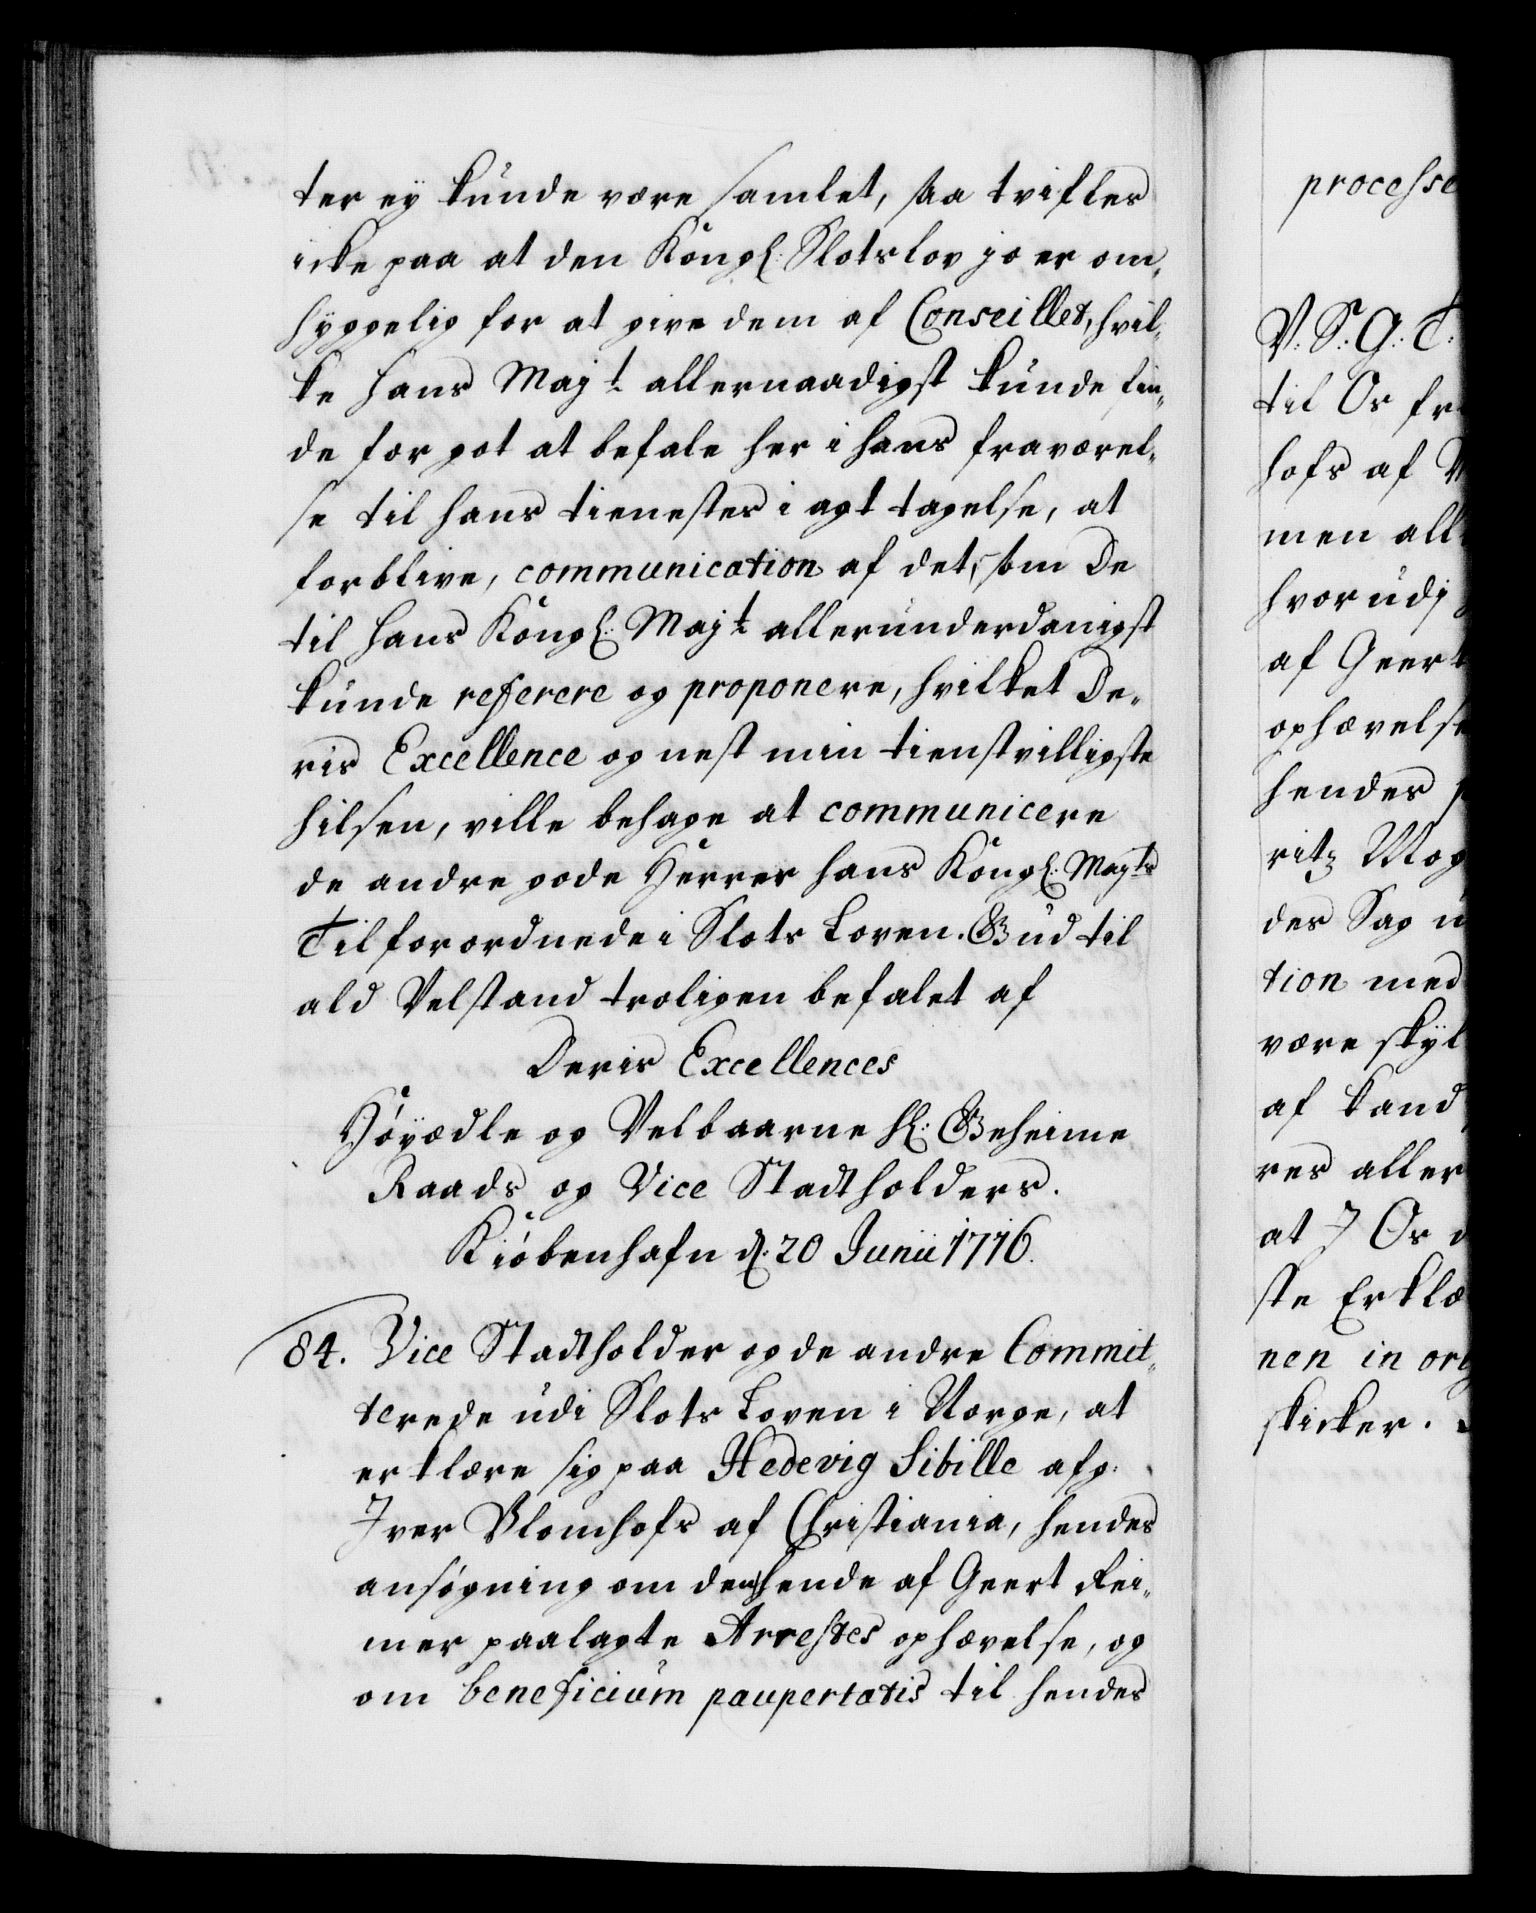 ter ey kunde være samlet, saa tvifles
icke paa at den Kongl: Slotslov jo er om-
hyggelig for at give dem af Conseillet, hvil-
ke hans Majt: allernaadigst kunde fin-
de for got at befale her i hans fraværel-
se til hans tienestes i agt tagelse, at
forblive, communication af det, som De
til hans Kongl: Majt: allerunderdanigst
kunde referere og proponere, hvilket De-
ris Excellence og nest min tienstvilligste
hilsen, ville behage at communicere
de andre gode Herrer hans Kongl: Mayts
Tilforordnede i Slots Loven. Gud til
ald Velstand troligen befalet af
Deris Excellences
Høyædle og Velbaarne Hl: Geheime
Raads og Vice Stadtholders.
Kiøbenhafn d: 20 Junii 1716.
84. Vice Stadtholder og de andre Commit-
terede udi Slots Loven i Norge, at
erklære sig paa Hedevig Sibille afg:
Iver Blomhofs af Christiania, hendes
ansøgning om den hende af Geert Rei-
mer paalagte Arrestes ophævelse, og
om beneficium paupertatis til hendes
processe
V: S: G: T:
til Os fr
hofs af
men all
hvorudj
af Geert
ophævelse
hendes
ritz Mog
des Sag u
tion med
være skyl
af kand
res aller
at I Os
ste Erklæ
nen in ori
skicker.